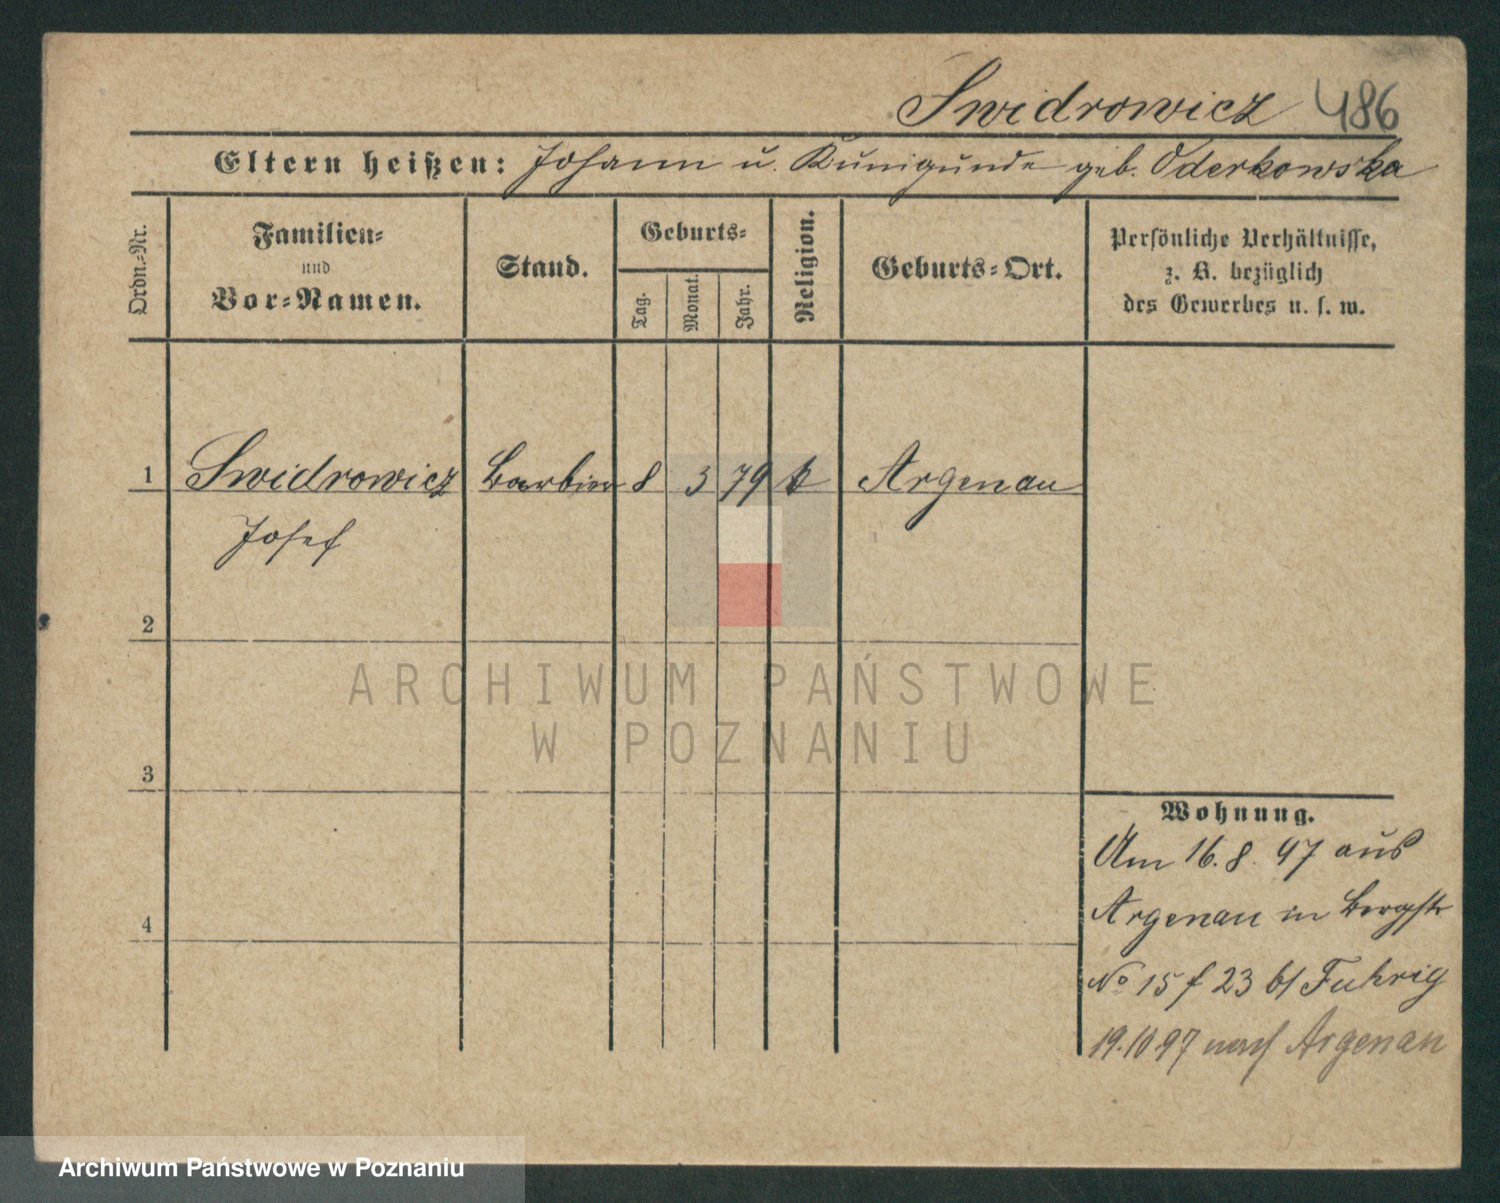 Swidrowicz 486
Eltern heißen: Johann u. Kunigunde geb. Oderkowska
Ordn.-Nr.
Familien-
und
Vor-Namen.
Stand.
Geburts-
Tag.
Monat.
Jahr.
Religion.
Geburts-Ort.
Persönliche Verhältnisse,
z. B. bezüglich
des Gewerbes u. s. w.
1 Swidrowicz Barbier 8 3 79 k Argenau
Josef
2
3
4
Wohnung.
Am 16. 8. 97 aus
Argenau in Bergstr
No 15 f 23 b/ Fuhrig
19.10.97 nach Argenau
ARCHIWUM PAŃSTWOWE
W POZNANIU
Archiwum Państwowe w Poznaniu